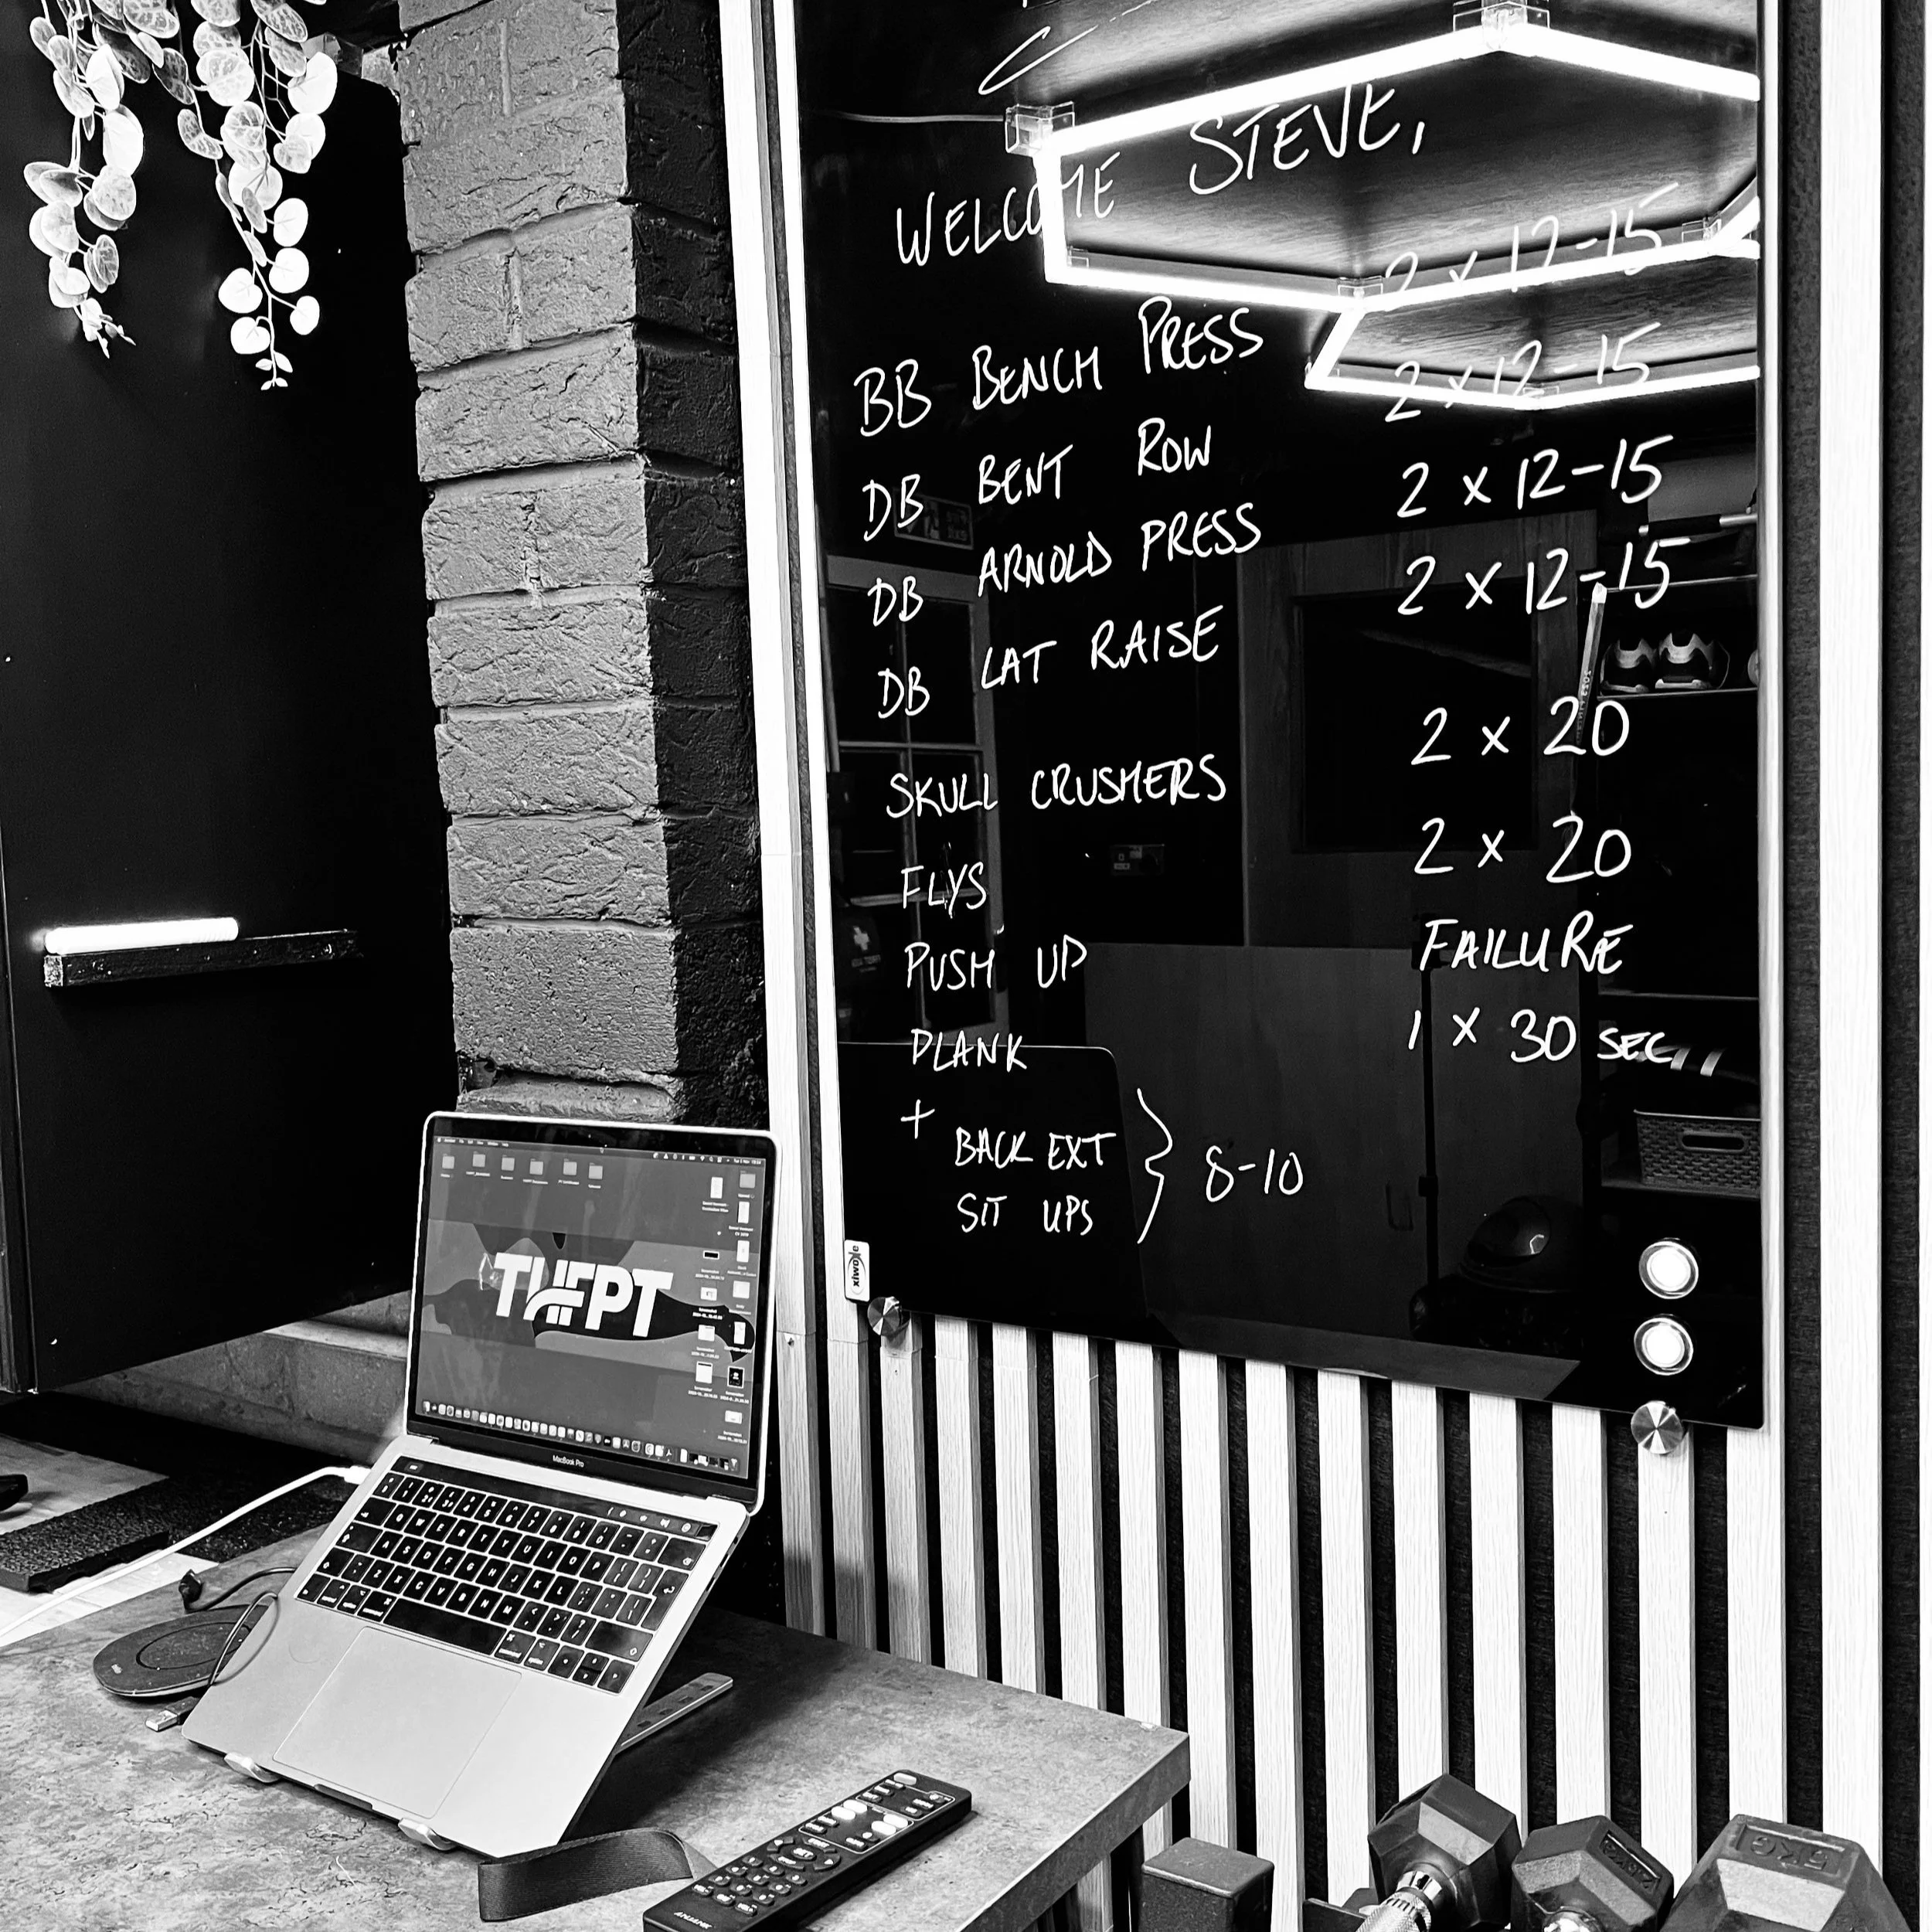 WELCOME STEVE,
BB BENCH PRESS 2 x 12-15
DB BENT ROW 2 x 12-15
DB ARNOLD PRESS 2 x 12-15
DB LAT RAISE 2 x 12-15
SKULL CRUSHERS 2 x 20
FLYS 2 x 20
PUSH UP FAILURE
PLANK 1 x 30 SEC
+
BACK EXT } 8-10
SIT UPS
THEPT
MacBook Pro
5KG